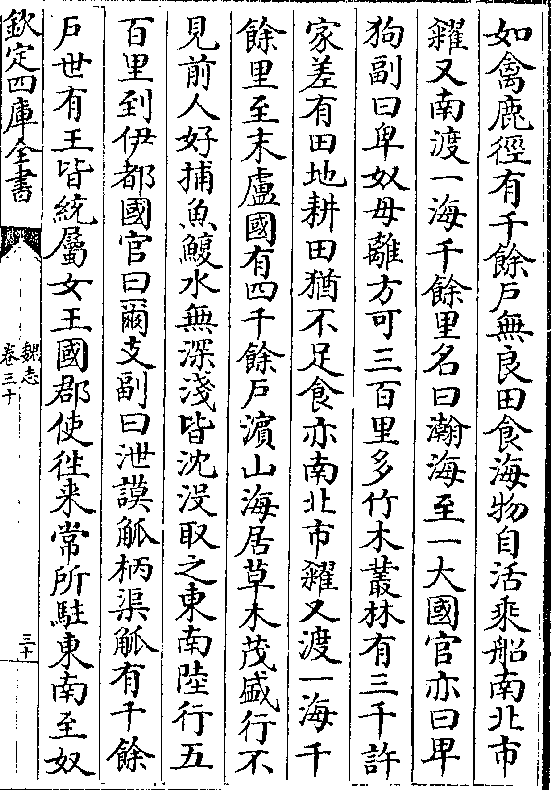 如禽鹿徑有千餘戶無良田食海物自活乗船南北市
糴又南渡一海千餘里名曰瀚海至一大國官亦曰卑
狗副曰卑奴毋離方可三百里多竹木叢林有三千許
家差有田地耕田猶不足食亦南北市糴又渡一海千
餘里至末盧國有四千餘戶濵山海居草木茂盛行不
見前人好捕魚鰒水無深淺皆沈没取之東南陸行五
百里到伊都國官曰爾支副曰泄謨觚柄渠觚有千餘
戶世有王皆統屬女王國郡使徃来常所駐東南至奴
欽定四庫全書
魏志
卷三十
三十